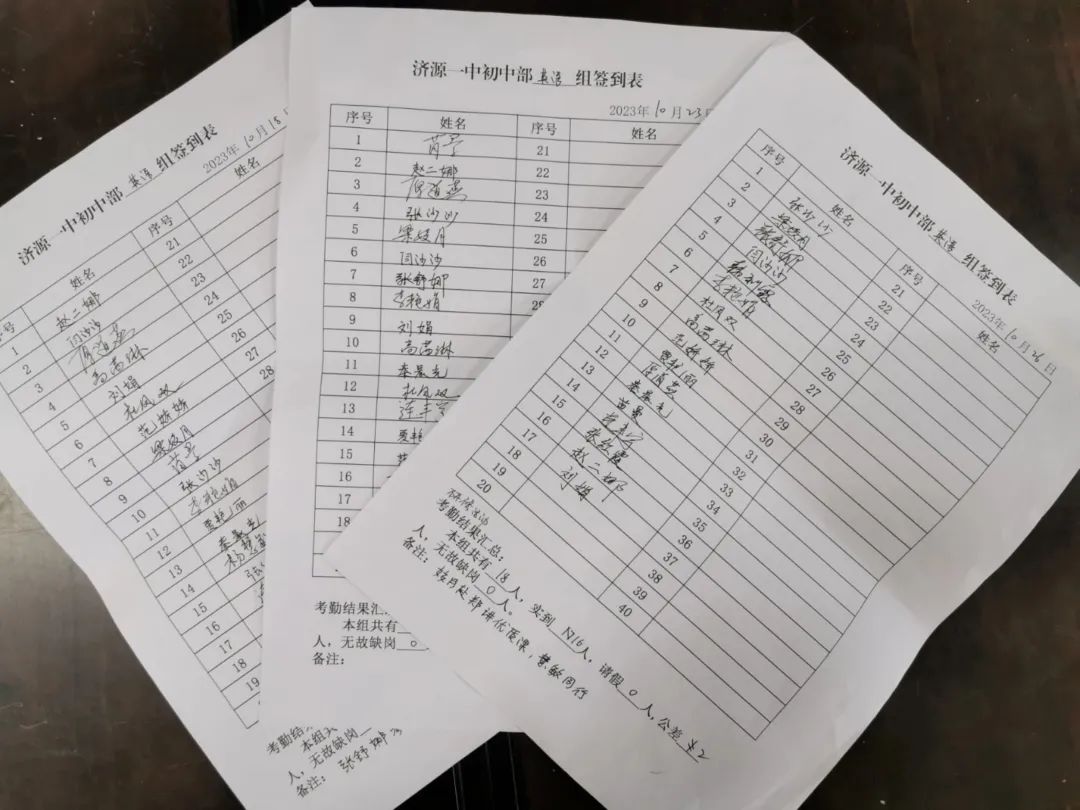 济源一中初中部 英语 组签到表
2023年 10 月 18 日
序号 姓名 序号 姓名
1 赵二娜 21
2 闫沙沙 22
3 23
4 高蕾琳 24
5 刘娟 25
6 杜凤双 26
7 范娇娇 27
8 梁姣月 28
9 苗曼
10 张沙沙
11 李艳娟
12 贾艳丽
13 秦景克
15
16
17
18
19
考勤结
本组共
人，无故缺岗
备注：张舒娜
济源一中初中部 英语 组签到表
2023年 10 月 23 日
序号 姓名 序号 姓名
1 苗曼 21
2 赵二娜 22
3 23
4 张沙沙 24
5 梁姣月 25
6 闫沙沙 26
7 张舒娜 27
8 李艳娟 28
9 刘娟
10 高蕾琳
11 秦景克
12 杜凤双
13
14 贾艳
15
16
17
18
考勤结果汇
本组共有
人，无故缺岗 0
备注：
济源一中初中部 英语 组签到表
2023年 10 月 26 日
序号 姓名 序号 姓名
1 张沙沙 21
2 梁姣月 22
3 张舒娜 23
4 闫沙沙 24
5 25
6 李艳娟 26
7 杜凤双 27
8 高蕾琳 28
9 范娇娇 29
10 贾艳丽 30
11 31
12 秦景克 32
13 苗曼 33
14 34
15 35
16 赵二娜 36
17 刘娟 37
18 38
19 39
20 40
考勤结果汇总：
本组共有 18 人，实到 16 人，请假 0 人，公差 2
人，无故缺岗 0 人。
备注：